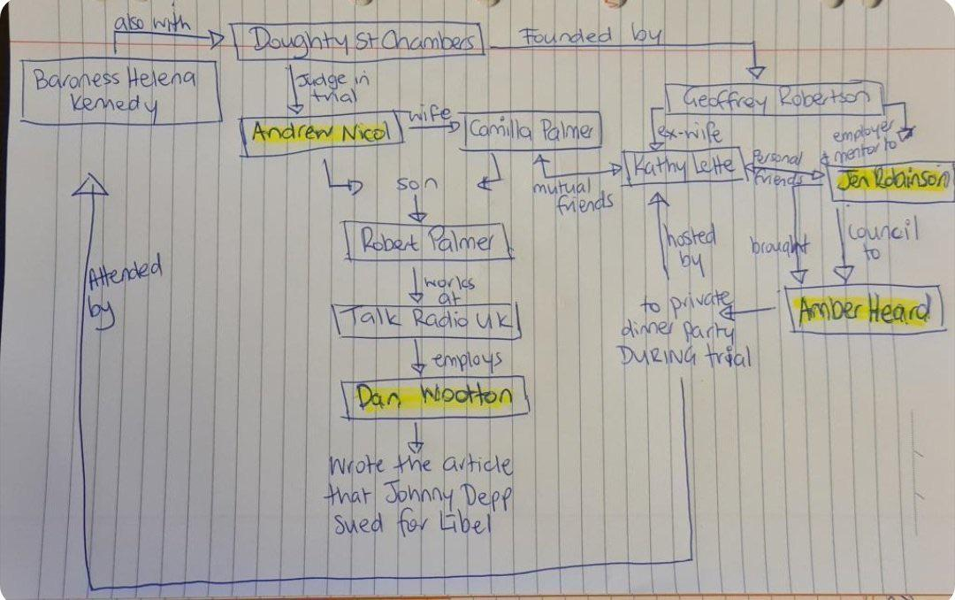 also with
Doughty St Chambers
Founded by
Baroness Helena
Kennedy
Judge in
trial
Geoffrey Robertson
Andrew Nicol
wife
Camilla Palmer
ex-wife
employer
mentor to
Kathy Lette
Personal
friends
Jen Robinson
son
mutual
friends
Robert Palmer
hosted
by
brought
council
to
Attended
by
works
at
Talk Radio UK
to private
dinner party
DURING trial
Amber Heard
employs
Dan Wootton
Wrote the article
that Johnny Depp
sued for Libel